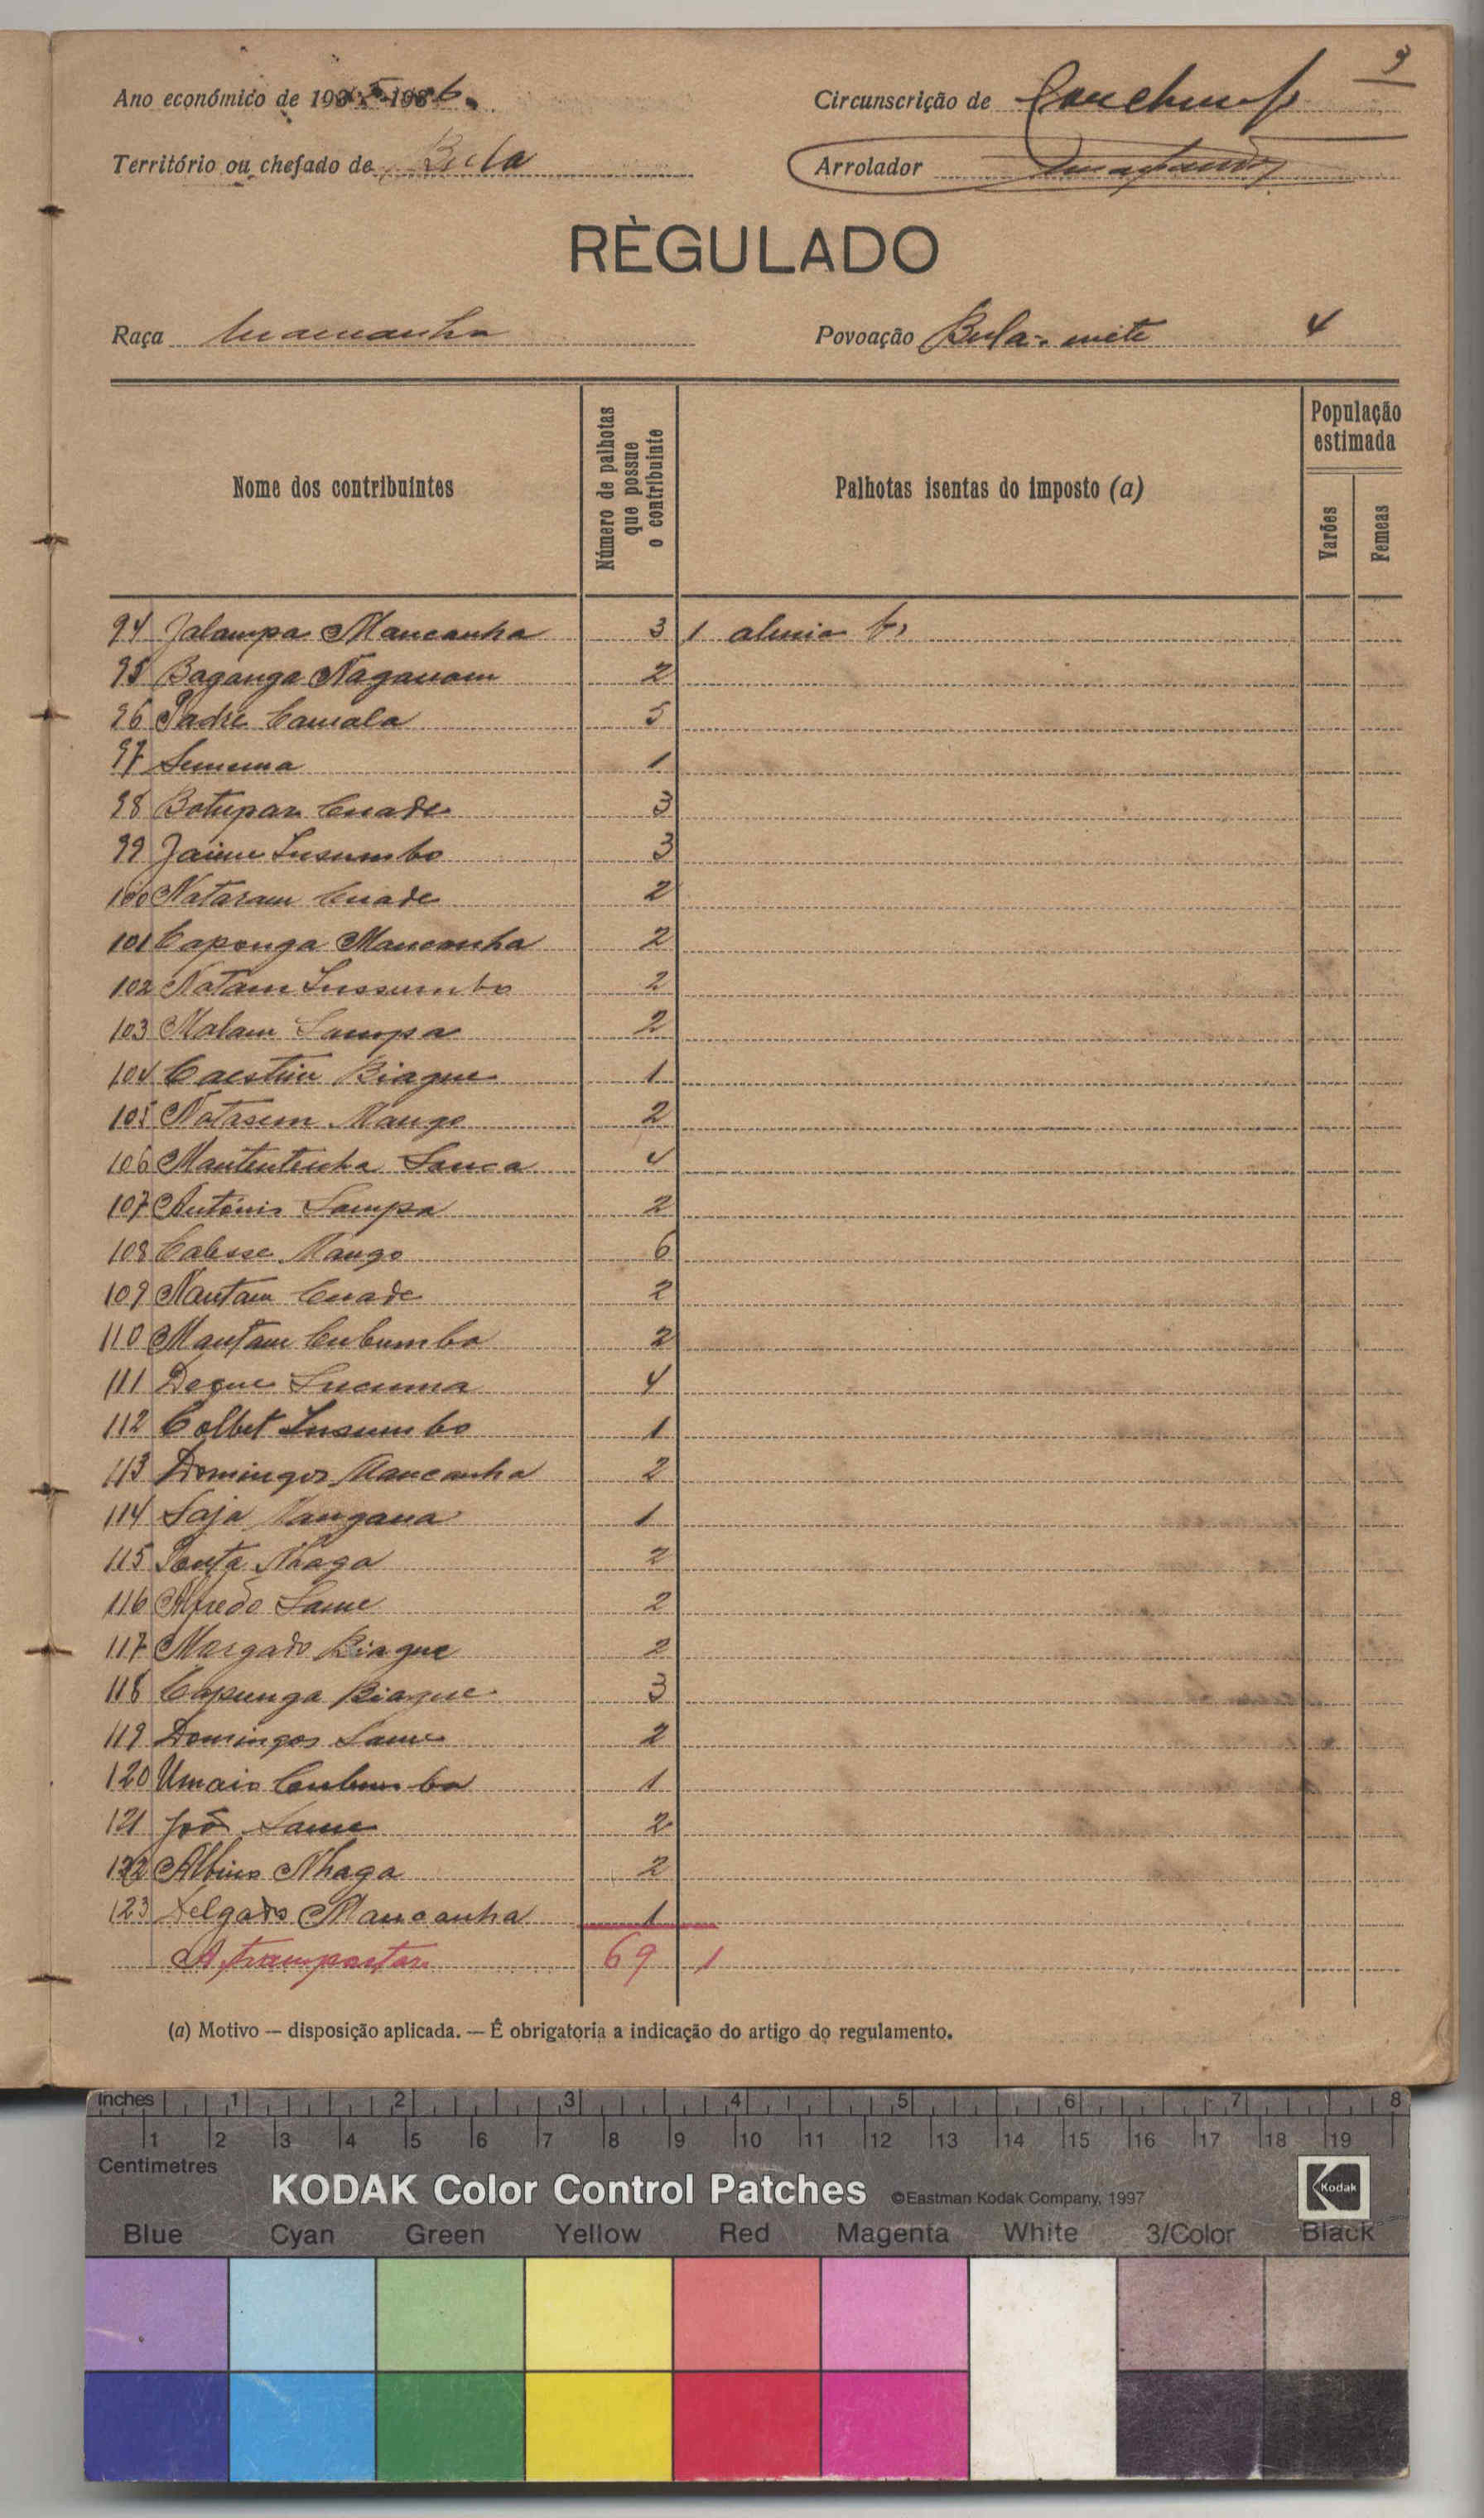 3
Ano económico de 1935-1936.
Circunscrição de
Território ou chefado de Bula
Arrolador
RÈGULADO
Raça Mancanha
Povoação Bula-mete 4
Nome dos contribuintes
Número de palhotas que possue o contribuinte
Palhotas isentas do imposto (a)
População estimada
Varões
Femeas
94 Jalampa Mancanha 3 1
95 Baganga Naganam 2
96 Padre Camala 5
97 1
98 Botupar Cuade 3
99 Jaime Insumbo 3
100 Nataram Cuade 2
101 Caponga Mancanha 2
102 Natam Inssumbo 2
103 Malam Sampa 2
104 Biague 1
105 Natasem Mango 2
106 Sanca 4
107 António Sampa 2
108 Cabesse Mango 6
109 Nantam Cuade 2
110 Mantam Cubumba 2
111 Deque 4
112 Colbet Insumbo 1
113 Domingos Mancanha 2
114 Saja Nangana 1
115 Nhaga 2
116 Alfredo Same 2
117 Morgado Biague 2
118 Capunga Biague 3
119 Domingos Same 2
120 Umaro Cubumba 1
121 Joõ Same 2
122 Albino Nhaga 2
123 Delgado Mancanha 1
A transportar 69 1
(a) Motivo — disposição aplicada. — É obrigatoria a indicação do artigo do regulamento.
inches 1 2 3 4 5 6 7 8
1 2 3 4 5 6 7 8 9 10 11 12 13 14 15 16 17 18 19
Centimetres
KODAK Color Control Patches ©Eastman Kodak Company, 1997 Kodak
Blue Cyan Green Yellow Red Magenta White 3/Color Black